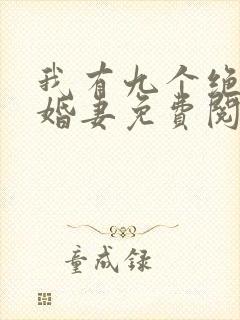 我有九个绝
婚妻免费阅
童成録